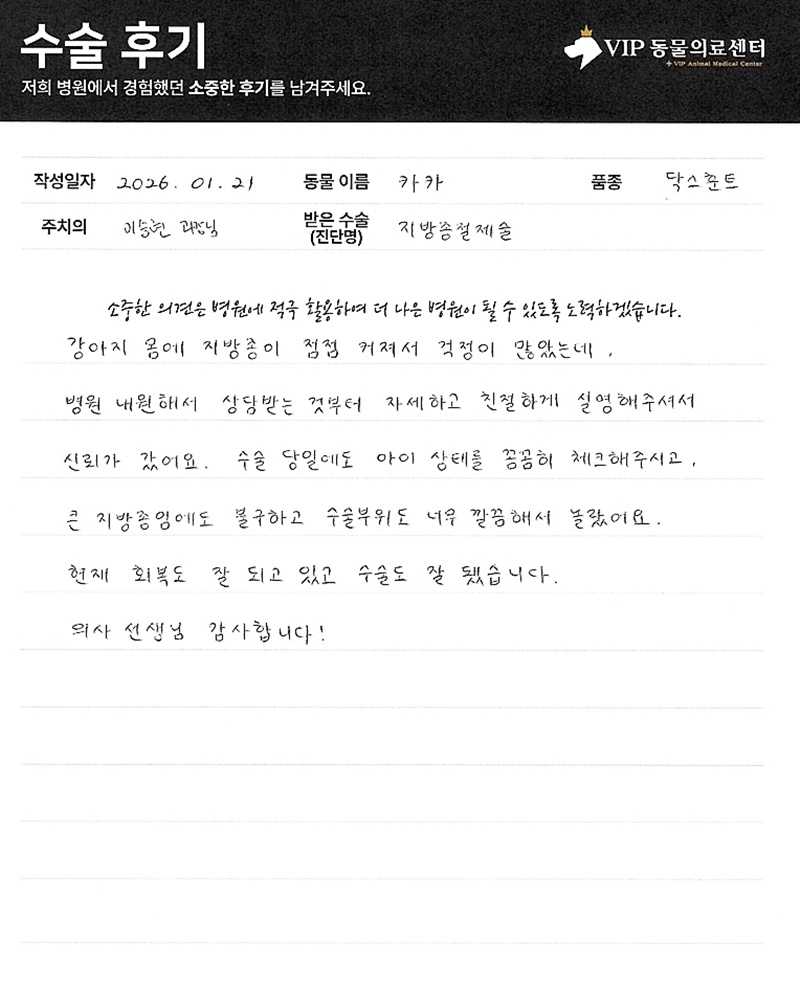 수술 후기
VIP 동물의료센터
VIP Animal Medical Center
저희 병원에서 경험했던 소중한 후기를 남겨주세요.
작성일자 2026. 01. 21 동물 이름 카카 품종 닥스훈트
주치의 이승현 과장님 받은 수술 (진단명) 지방종절제술
소중한 의견은 병원에 적극 활용하여 더 나은 병원이 될 수 있도록 노력하겠습니다.
강아지 몸에 지방종이 점점 커져서 걱정이 많았는데,
병원 내원해서 상담받는 것부터 자세하고 친절하게 설명해주셔서
신뢰가 갔어요. 수술 당일에도 아이 상태를 꼼꼼히 체크해주시고,
큰 지방종임에도 불구하고 수술부위도 너무 깔끔해서 놀랐어요.
현재 회복도 잘 되고 있고 수술도 잘 됐습니다.
의사 선생님 감사합니다!